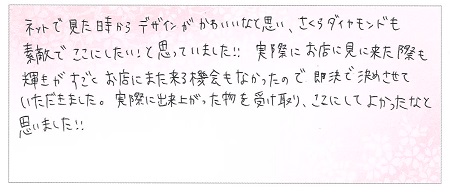 ネットで見た時からデザインがかわいいなと思い、さくらダイヤモンドも
素敵でここにしたい!と思っていました!! 実際にお店に見に来た際も
輝きがすごくお店にまた来る機会もなかったので即決で決めさせて
いただきました。実際に出来上がった物を受け取り、ここにしてよかったなと
思いました!!